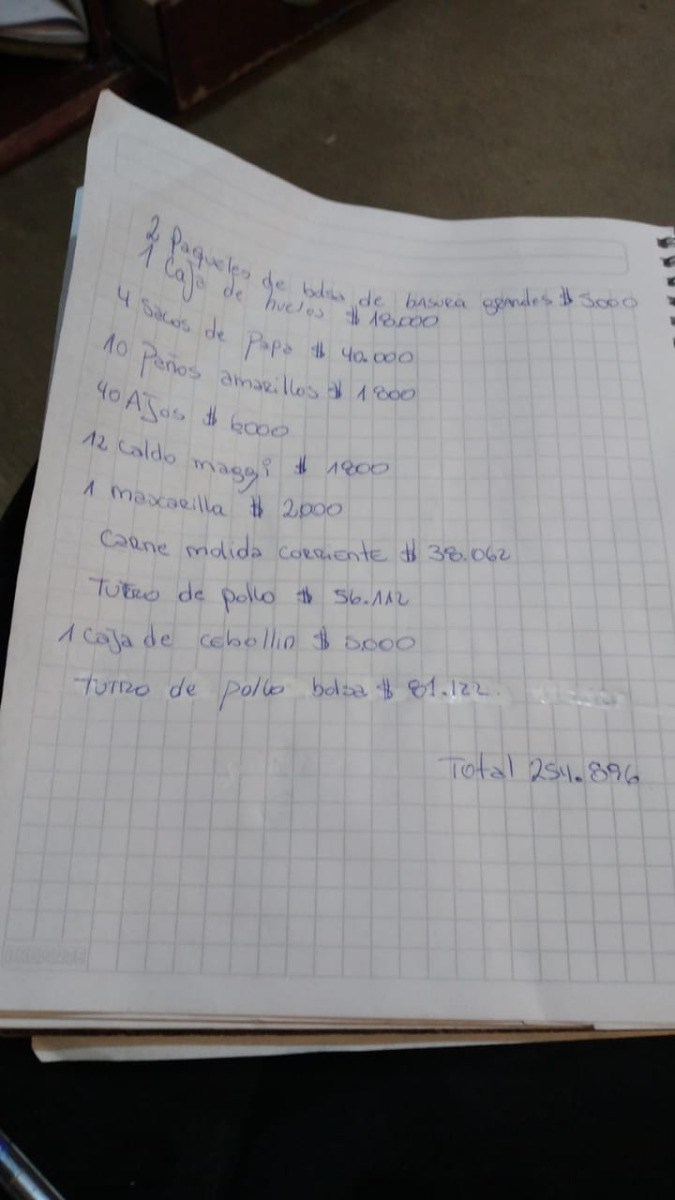 2 Paquetes de bolsa de basura grandes $ 5000
1 Caja de huevos $ 18.000
4 Sacos de papa $ 40.000
10 Paños amarillos $ 1800
40 Ajos $ 6000
12 Caldo maggi $ 1800
1 maxcarilla $ 2000
Carne molida corriente $ 38.062
Tutro de pollo $ 56.112
1 caja de cebollin $ 5.000
Tutro de pollo bolsa $ 81.122
Total 254.896